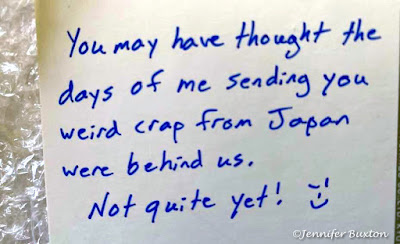 You may have thought the
days of me sending you
weird crap from Japan
were behind us.
Not quite yet! :)
©Jennifer Buxton